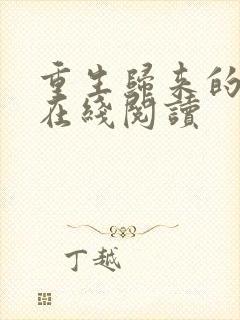 重生歸來的
在綫閱讀
丁越